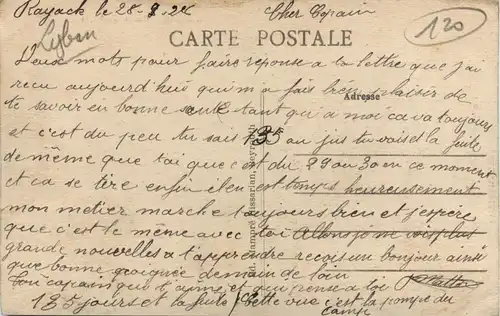 Rayack le 28-8-24 Cher Copain
Lyban
120
CARTE POSTALE
Deux mots pour faire réponse a ta lettre que j'ai
recu aujourd'hui qui m'a fais bien plaisir de
Adresse
te savoir en bonne santé tant qu'a moi ca va toujours
et c'est du peu tu sais 135 au jus tu vois et la fuite
de même que toi que c'est du 29 au 30 en ce moment
et ca se tire enfin il en est temps heureusement
mon metier marche toujours bien et j'espère
que c'est le même avec toi Allons je ne vois plus
grande nouvelles a t'apprendre recois un bonjour ainsi
que bonne poignée de main de loin
Ton copain qui t'aime et qui pense a toi
135 jours et la fuite Cette vue c'est la pompe du
camp